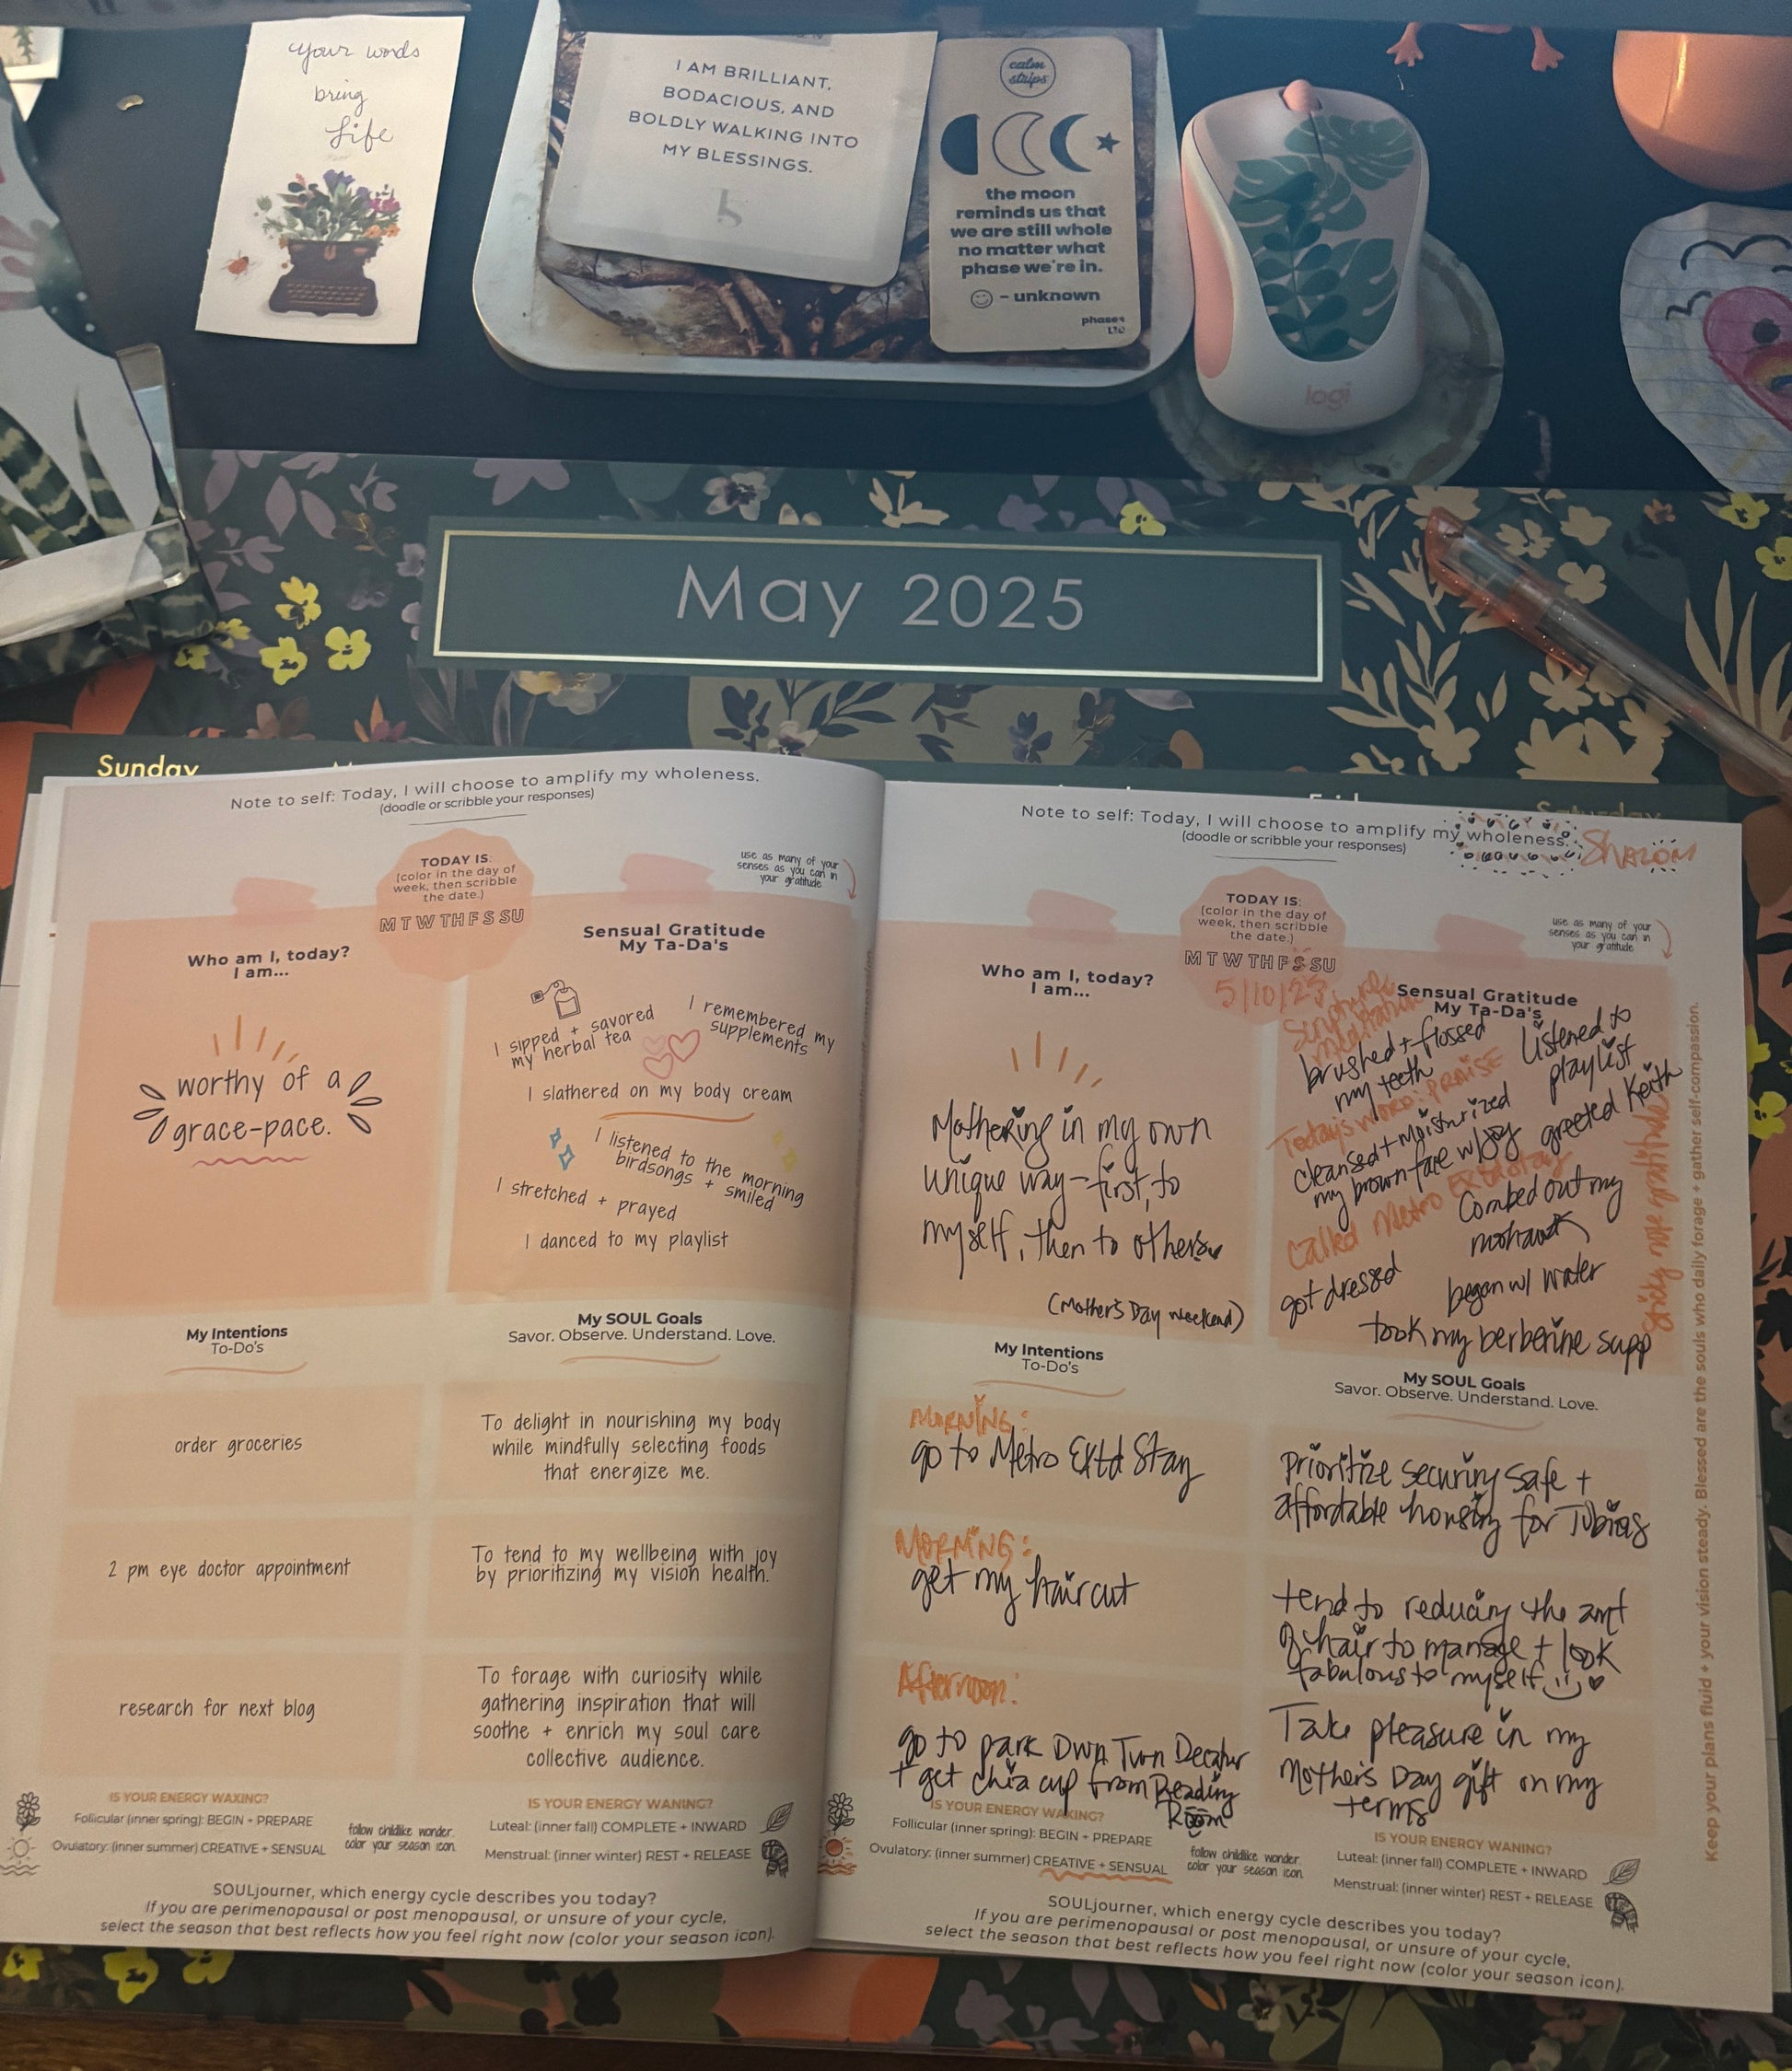 your words
bring
Life
I AM BRILLIANT,
BODACIOUS, AND
BOLDLY WALKING INTO
MY BLESSINGS.
calm
strips
the moon
reminds us that
we are still whole
no matter what
phase we're in.
- unknown
phases
LTD
logi
May 2025
Sunday
Saturday
Note to self: Today, I will choose to amplify my wholeness.
(doodle or scribble your responses)
TODAY IS:
(color in the day of
week, then scribble
the date.)
M T W TH F S SU
use as many of your
senses as you can in
your gratitude
Who am I, today?
I am...
worthy of a
grace-pace.
Sensual Gratitude
My Ta-Da's
I sipped + savored
my herbal tea
I remembered my
supplements
I slathered on my body cream
I listened to the morning
birdsongs + smiled
I stretched + prayed
I danced to my playlist
My Intentions
To-Do's
My SOUL Goals
Savor. Observe. Understand. Love.
order groceries
To delight in nourishing my body
while mindfully selecting foods
that energize me.
2 pm eye doctor appointment
To tend to my wellbeing with joy
by prioritizing my vision health.
research for next blog
To forage with curiosity while
gathering inspiration that will
soothe + enrich my soul care
collective audience.
IS YOUR ENERGY WAXING?
Follicular (inner spring): BEGIN + PREPARE
Ovulatory: (inner summer) CREATIVE + SENSUAL
follow childlike wonder.
color your season icon.
IS YOUR ENERGY WANING?
Luteal: (inner fall) COMPLETE + INWARD
Menstrual: (inner winter) REST + RELEASE
SOULjourner, which energy cycle describes you today?
If you are perimenopausal or post menopausal, or unsure of your cycle,
select the season that best reflects how you feel right now (color your season icon).
Note to self: Today, I will choose to amplify my wholeness.
(doodle or scribble your responses)
SHALOM
TODAY IS:
(color in the day of
week, then scribble
the date.)
M T W TH F S SU
5/10/25
use as many of your
senses as you can in
your gratitude
Who am I, today?
I am...
Mothering in my own
unique way - first, to
myself, then to others
(Mother's Day weekend)
Sensual Gratitude
My Ta-Da's
Scripture
meditation
brushed + flossed
my teeth
Listened to
playlist
Today's word: PRAISE
cleansed + moisturized
my brown face w/ joy
greeted Keith
Called Metro Extd Stay
Combed out my
mohawk
got dressed
began w/ water
took my berberine supp
Sticky note gratitude
My Intentions
To-Do's
My SOUL Goals
Savor. Observe. Understand. Love.
MORNING:
go to Metro Extd Stay
Prioritize securing safe +
affordable housing for Tobias
MORNING:
get my haircut
tend to reducing the amt
of hair to manage + look
fabulous to myself
Afternoon:
go to park Dwn Twn Decatur
+ get chia cup from Reading
Room
Take pleasure in my
Mother's Day gift on my
terms
IS YOUR ENERGY WAXING?
Follicular (inner spring): BEGIN + PREPARE
Ovulatory: (inner summer) CREATIVE + SENSUAL
follow childlike wonder.
color your season icon.
IS YOUR ENERGY WANING?
Luteal: (inner fall) COMPLETE + INWARD
Menstrual: (inner winter) REST + RELEASE
SOULjourner, which energy cycle describes you today?
If you are perimenopausal or post menopausal, or unsure of your cycle,
select the season that best reflects how you feel right now (color your season icon).
Keep your plans fluid + your vision steady. Blessed are the souls who daily forage + gather self-compassion.